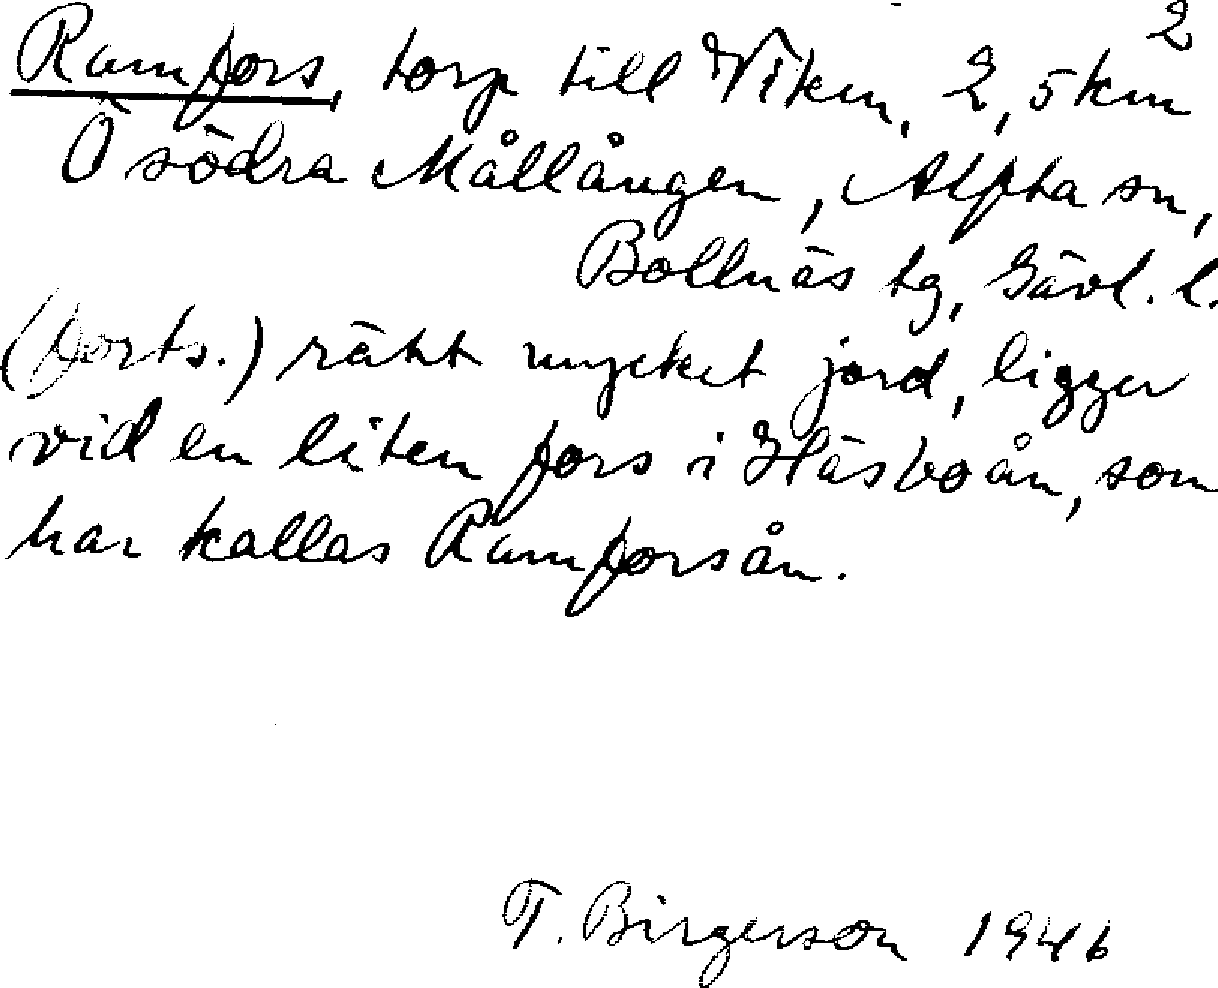 2
Ramfors, torp till Viken, 2,5 km
Ö södra Mållången, Alfta sn,
Bollnäs tg, Gävl. l.
(Dorts.) rätt mycket jord, ligger
vid en liten fors i Häsboån, som
har kallas Ramforsån.
T. Birgerson 1946